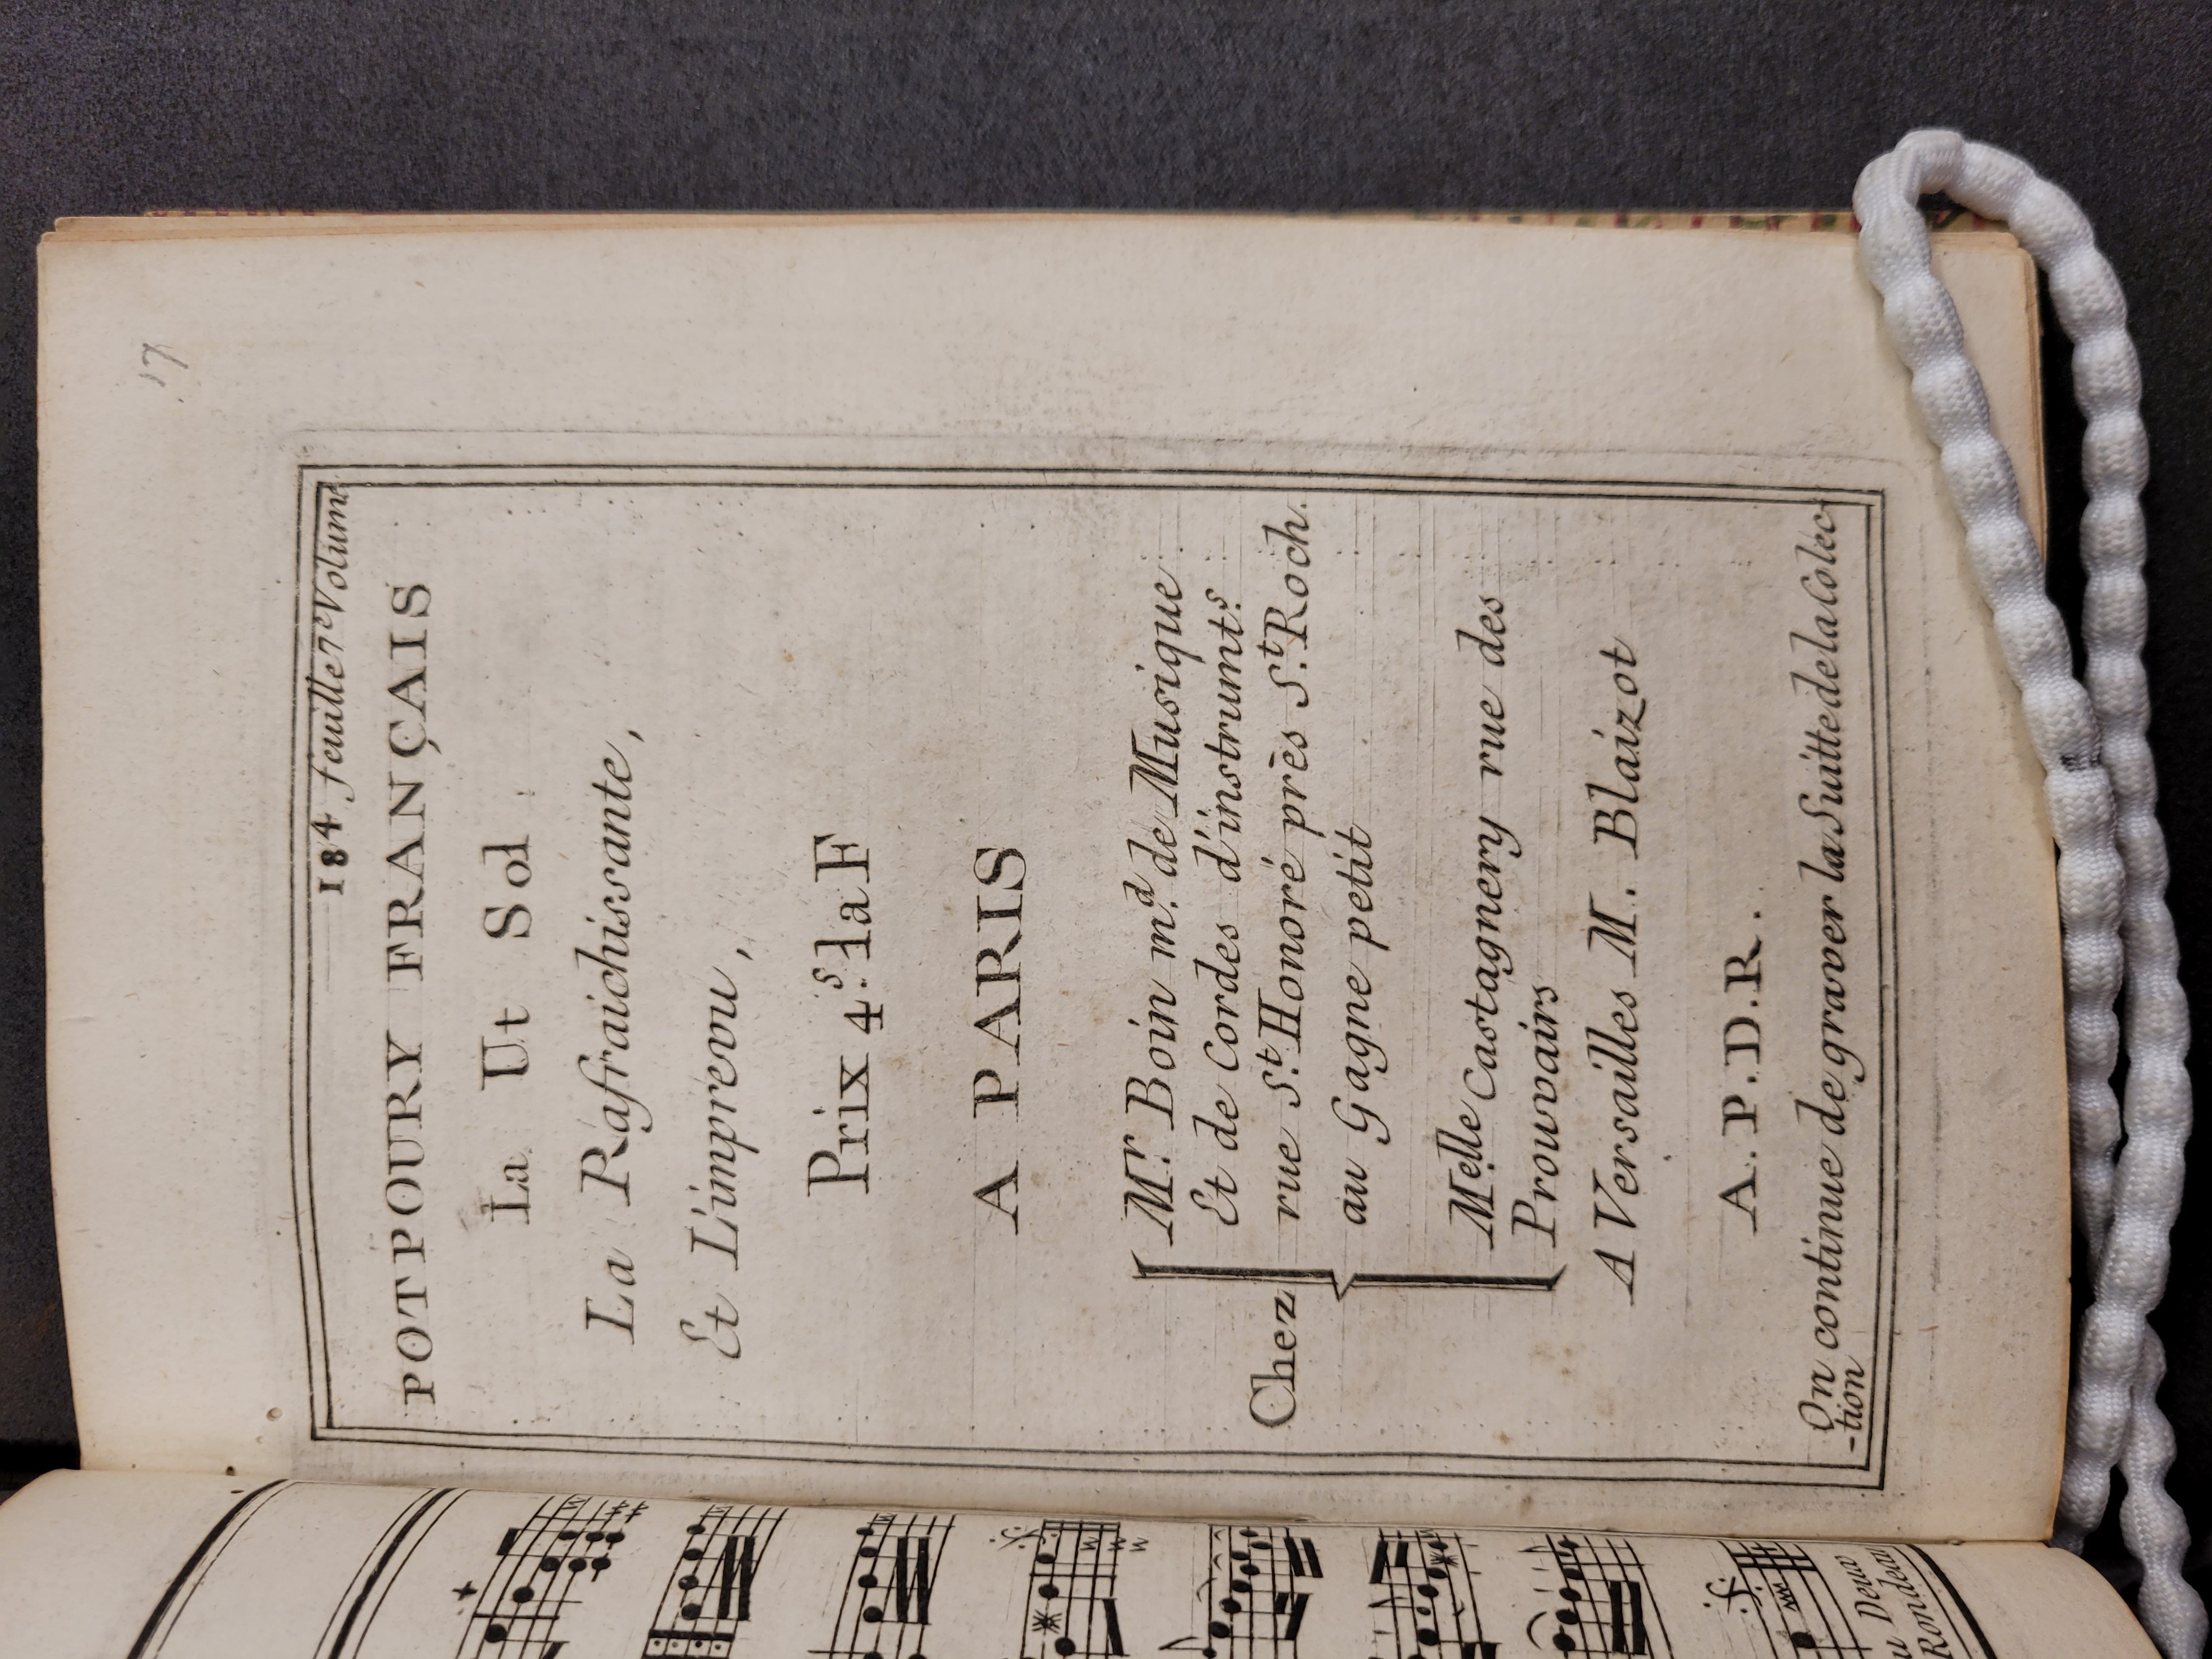 17
184 feuille 7e Volume
POTPOURY FRANÇAIS
La Ut Sol
La Rafraichissante,
Et L'imprevu,
Prix 4.s la F
A PARIS
Mr. Boin md. de Musique
Et de Cordes d'instrumts.
Chez rue St. Honoré près St. Roch.
au Gagne petit
Melle Castagnery rue des
Prouvairs
A Versailles M. Blaizot
A. P. D. R.
On continue de graver la Suitte de la Colec
-tion
Deux
Rondeau